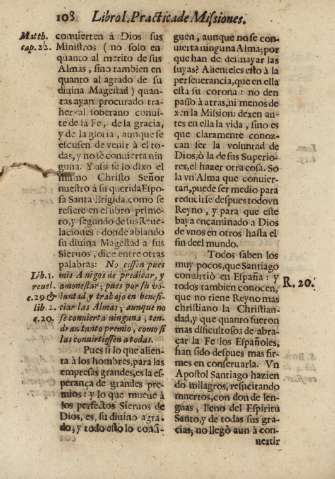 108 Libro I. Practica de Missiones.
Matth.
cap. 22.
convierten à Dios sus
Ministros (no solo en
quanto al merito de sus
Almas, sino tambien en
quanto al agrado de su
divina Magestad) quan-
tas ayan procurado tra-
her al soberano convi-
te de la Fe, de la gracia,
y de la gloria, aunque se
escusen de venir à el to-
das, y no se convierta nin-
guna. Y assi se lo dixo el
mismo Christo Señor
nuestro à su querida Espo-
sa Santa Brigida, como se
refiere en el libro prime-
ro, y segundo de sus Reve-
laciones: donde ablando
su divina Magestad à sus
Siervos, dice entre otras
palabras: No cessen pues
mis Amigos de predicar, y
amonestar; pues por su vo-
luntad, y trabajo en benefi-
ciar las Almas; aunque no
se convierta ninguna, ten-
dràn tanto premio, como si
las convirtiessen a todas.
Lib. 1.
revel.
c. 29. &
lib. 2.
c. 20.
Pues si lo que alien-
ta à los hombres, para las
empresas grandes, es la es-
perança de grandes pre-
mios: y lo que mueve à
los perfectos Siervos de
Dios, es, su divino agra-
do; y todo esto lo consi-
guen, aunque no se con-
vierta ninguna Alma; por
que han de desmayar las
suyas? Alientelas esto à la
perseverancia, que en ella
està su corona: no den
passo à atras, ni menos de-
xen la Mission: dexen an-
tes en ella la vida, sino es
que claramente conoz-
can ser la voluntad de
Dios, ò la de sus Superio-
res, el hazer otra cosa. So-
la vn Alma que convier-
tan, puede ser medio para
reducirse despues todo vn
Reyno, y para que este
vaya encaminado a Dios
de vnos en otros hasta el
fin del mundo.
Todos saben los
muy pocos, que Santiago
convirtiò en España: y
todos tambien conocen,
que no tiene Reyno mas
christiano la Christian-
dad, y que quanto fueron
mas dificultosos de abra-
çar la Fe los Españoles,
han sido despues mas fir-
mes en conservarla. Vn
Apostol Santiago hazien-
do milagros, resucitando
muertos, con don de len-
guas, lleno del Espiritu
Santo, y de todas sus gra-
cias, no llegò aun à con-
R. 20.
vertir